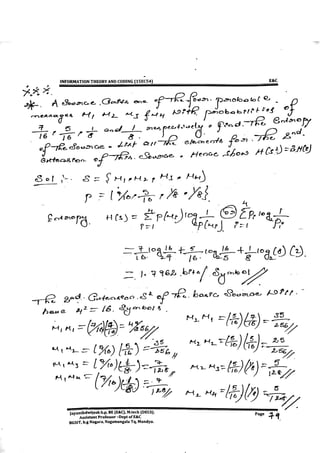 INFORMATION THEORY AND CODING (15EC54) E&C
A Source emits one of the four probable
messages M1, M2, M3 & M4 with probabilities of
7/16, 5/16, 1/8 and 1/8 respectively. Find the Entropy
of the Source. List all the elements for the 2nd
extension of this source. Hence show H(S²) = 2H(S)
Sol :- S = { M1, M2, M3, M4 }
P = { 7/16, 5/16, 1/8, 1/8 }
Entropy H(S) = Σ P(Mi) log 1/P(Mi) = Σ Pi log 1/Pi
i=1 i=1
= 7/16 log 16/7 + 5/16 log 16/5 + 1/8 log (8) (2)
= 1.7962 bits/Symbol
The 2nd Extension S² of the basic Source will
have 4² = 16 Symbols
M1 M1 = (7/16)(7/16) = 49/256 M2 M1 = (5/16)(7/16) = 35/256
M1 M2 = (7/16)(5/16) = 35/256 M2 M2 = (5/16)(5/16) = 25/256
M1 M3 = (7/16)(1/8) = 7/128 M2 M3 = (5/16)(1/8) = 5/128
M1 M4 = (7/16)(1/8) = 7/128 M2 M4 = (5/16)(1/8) = 5/128
Assistant Professor - Dept of E&C Page 79
BGSIT, B.G Nagara, Nagamangala Tq, Mandya.